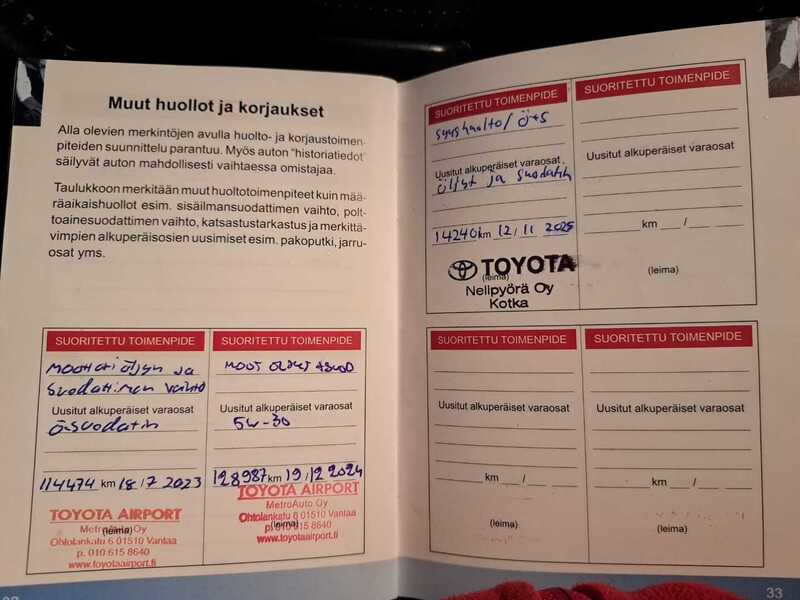 Muut huollot ja korjaukset
Alla olevien merkintöjen avulla huolto- ja korjaustoimen-
piteiden suunnittelu parantuu. Myös auton "historiatiedot"
säilyvät auton mahdollisesti vaihtaessa omistajaa.
Taulukkoon merkitään muut huoltotoimenpiteet kuin mää-
räaikaishuollot esim. sisäilmansuodattimen vaihto, polt-
toainesuodattimen vaihto, katsastustarkastus ja merkittä-
vimpien alkuperäisosien uusimiset esim. pakoputki, jarru-
osat yms.
SUORITETTU TOIMENPIDE
moottoriöljyn ja
suodattimen vaihto
Uusitut alkuperäiset varaosat
ö-suodatin
114474 km 18/7 2023
TOYOTA AIRPORT
MetroAuto Oy
(leima)
Ohtolankatu 6 01510 Vantaa
p. 010 615 8640
www.toyotaairport.fi
SUORITETTU TOIMENPIDE
MOOT ÖLJYT +SUOD
Uusitut alkuperäiset varaosat
5W-30
128987 km 19/12 2024
TOYOTA AIRPORT
MetroAuto Oy
Ohtolankatu 6 01510 Vantaa
(leima)
p. 010 615 8640
www.toyotaairport.fi
SUORITETTU TOIMENPIDE
syyshuolto/ Ö+S
Uusitut alkuperäiset varaosat
öljyt ja suodatin
14240 km 12/11 2025
TOYOTA
(leima)
Nelipyörä Oy
Kotka
SUORITETTU TOIMENPIDE
Uusitut alkuperäiset varaosat
km __/__ __
(leima)
SUORITETTU TOIMENPIDE
Uusitut alkuperäiset varaosat
km __/__ __
(leima)
SUORITETTU TOIMENPIDE
Uusitut alkuperäiset varaosat
km __/__ __
(leima)
33